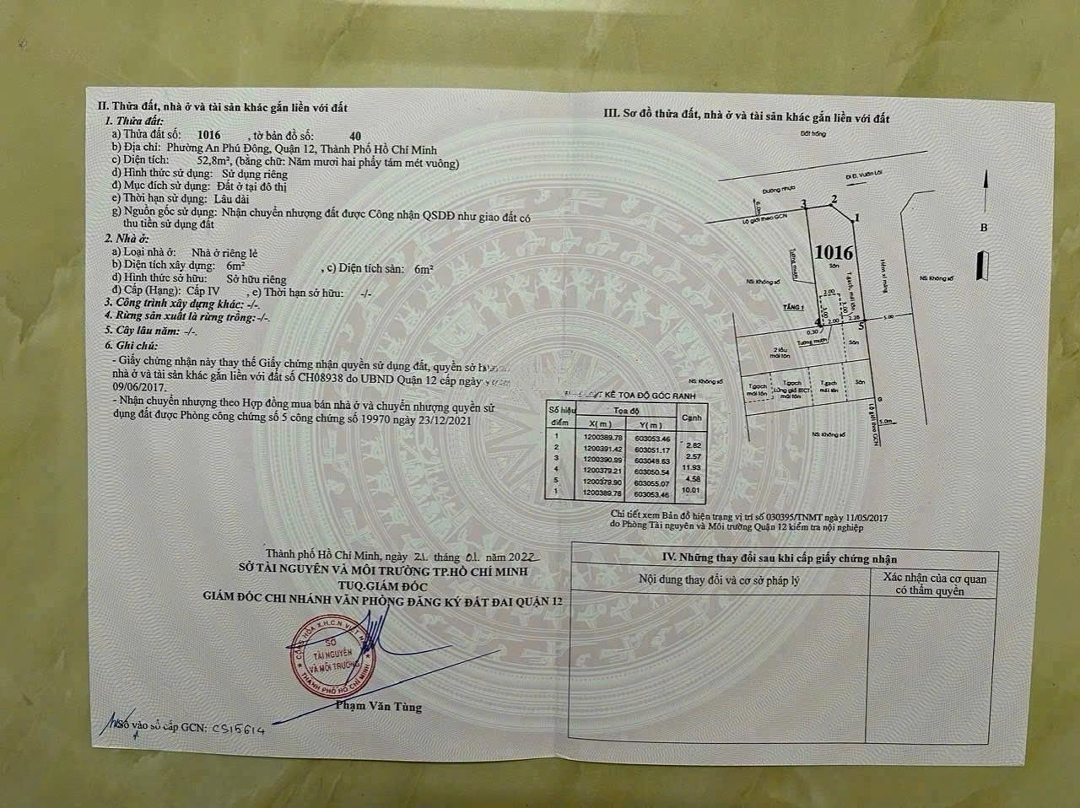 II. Thửa đất, nhà ở và tài sản khác gắn liền với đất
1. Thửa đất:
a) Thửa đất số: 1016 , tờ bản đồ số: 40
b) Địa chỉ: Phường An Phú Đông, Quận 12, Thành Phố Hồ Chí Minh
c) Diện tích: 52,8m², (bằng chữ: Năm mươi hai phẩy tám mét vuông)
d) Hình thức sử dụng: Sử dụng riêng
đ) Mục đích sử dụng: Đất ở tại đô thị
e) Thời hạn sử dụng: Lâu dài
g) Nguồn gốc sử dụng: Nhận chuyển nhượng đất được Công nhận QSDĐ như giao đất có
thu tiền sử dụng đất
2. Nhà ở:
a) Loại nhà ở: Nhà ở riêng lẻ
b) Diện tích xây dựng: 6m² , c) Diện tích sàn: 6m²
d) Hình thức sở hữu: Sở hữu riêng
đ) Cấp (Hạng): Cấp IV , e) Thời hạn sở hữu: -/-
3. Công trình xây dựng khác: -/-
4. Rừng sản xuất là rừng trồng: -/-
5. Cây lâu năm: -/-
6. Ghi chú:
- Giấy chứng nhận này thay thế Giấy chứng nhận quyền sử dụng đất, quyền sở
nhà ở và tài sản khác gắn liền với đất số CH08938 do UBND Quận 12 cấp ngày
09/06/2017.
- Nhận chuyển nhượng theo Hợp đồng mua bán nhà ở và chuyển nhượng quyền sử
dụng đất được Phòng công chứng số 5 công chứng số 19970 ngày 23/12/2021
Thành phố Hồ Chí Minh, ngày 21 tháng 01 năm 2022
SỞ TÀI NGUYÊN VÀ MÔI TRƯỜNG TP.HỒ CHÍ MINH
TUQ.GIÁM ĐỐC
GIÁM ĐỐC CHI NHÁNH VĂN PHÒNG ĐĂNG KÝ ĐẤT ĐAI QUẬN 12
CỘNG HÒA X.H.C.N VIỆT NAM
SỞ
TÀI NGUYÊN
VÀ MÔI TRƯỜNG
THÀNH PHỐ HỒ CHÍ MINH
Phạm Văn Tùng
Số vào sổ cấp GCN: CS15614
III. Sơ đồ thửa đất, nhà ở và tài sản khác gắn liền với đất
Đất trống
Đi Đ. Vườn Lài
Đường nhựa
Lộ giới theo GCN
3
2
1
B
1016
Sân
Tường mượn
NS: Không số
Hẻm xi măng
NS: Không số
T.gạch, mái tôn
TẦNG 1
2.00
3.00
3.00
4
0.30
2.00
2.28
5
5.00
Tường mượn
2 lầu
mái tôn
Sân
NS: Không số
T.gạch
mái tôn
T.gạch
Lửng giả BTCT
mái tôn
T.gạch
mái tôn
Sân
NS: Không số
Lộ giới theo GCN
5.0m
KÊ TỌA ĐỘ GÓC RANH
Số hiệu điểm Tọa độ Cạnh
X( m ) Y( m )
1 1200389.78 603053.46
2.82
2 1200391.42 603051.17
2.57
3 1200390.99 603048.63
11.93
4 1200379.21 603050.54
4.58
5 1200379.90 603055.07
10.01
1 1200389.78 603053.46
Chi tiết xem Bản đồ hiện trạng vị trí số 030395/TNMT ngày 11/05/2017
do Phòng Tài nguyên và Môi trường Quận 12 kiểm tra nội nghiệp
IV. Những thay đổi sau khi cấp giấy chứng nhận
Nội dung thay đổi và cơ sở pháp lý
Xác nhận của cơ quan
có thẩm quyền